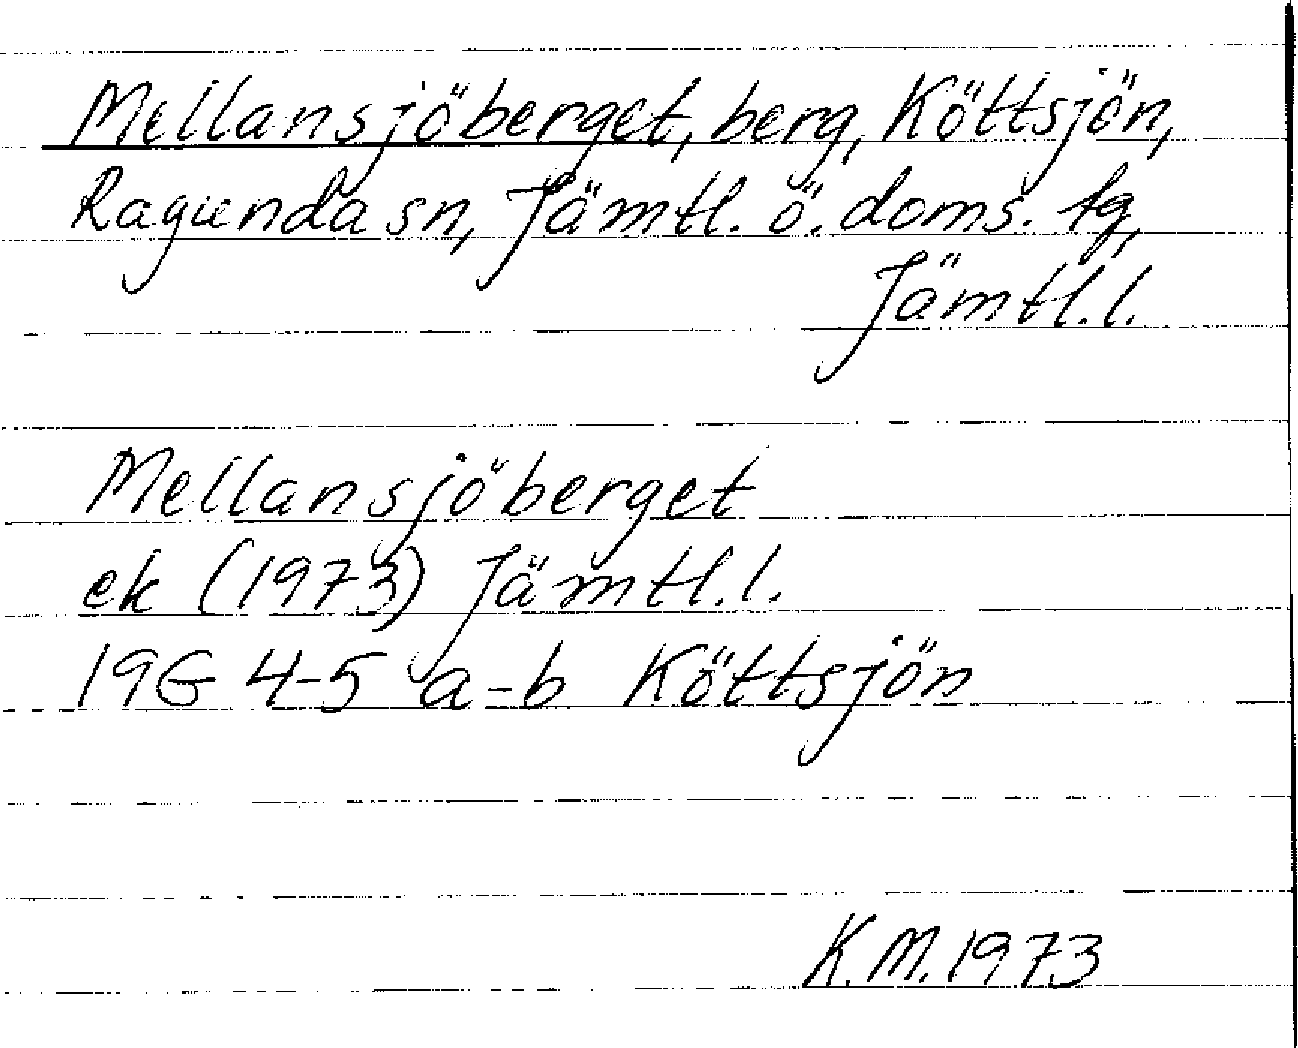 Mellansjöberget, berg, Köttsjön,
Ragunda sn, Jämtl. ö. doms. tg,
Jämtl.l.
Mellansjöberget
ek (1973) Jämtl.l.
19G 4-5 a-b Köttsjön
K.M.1973